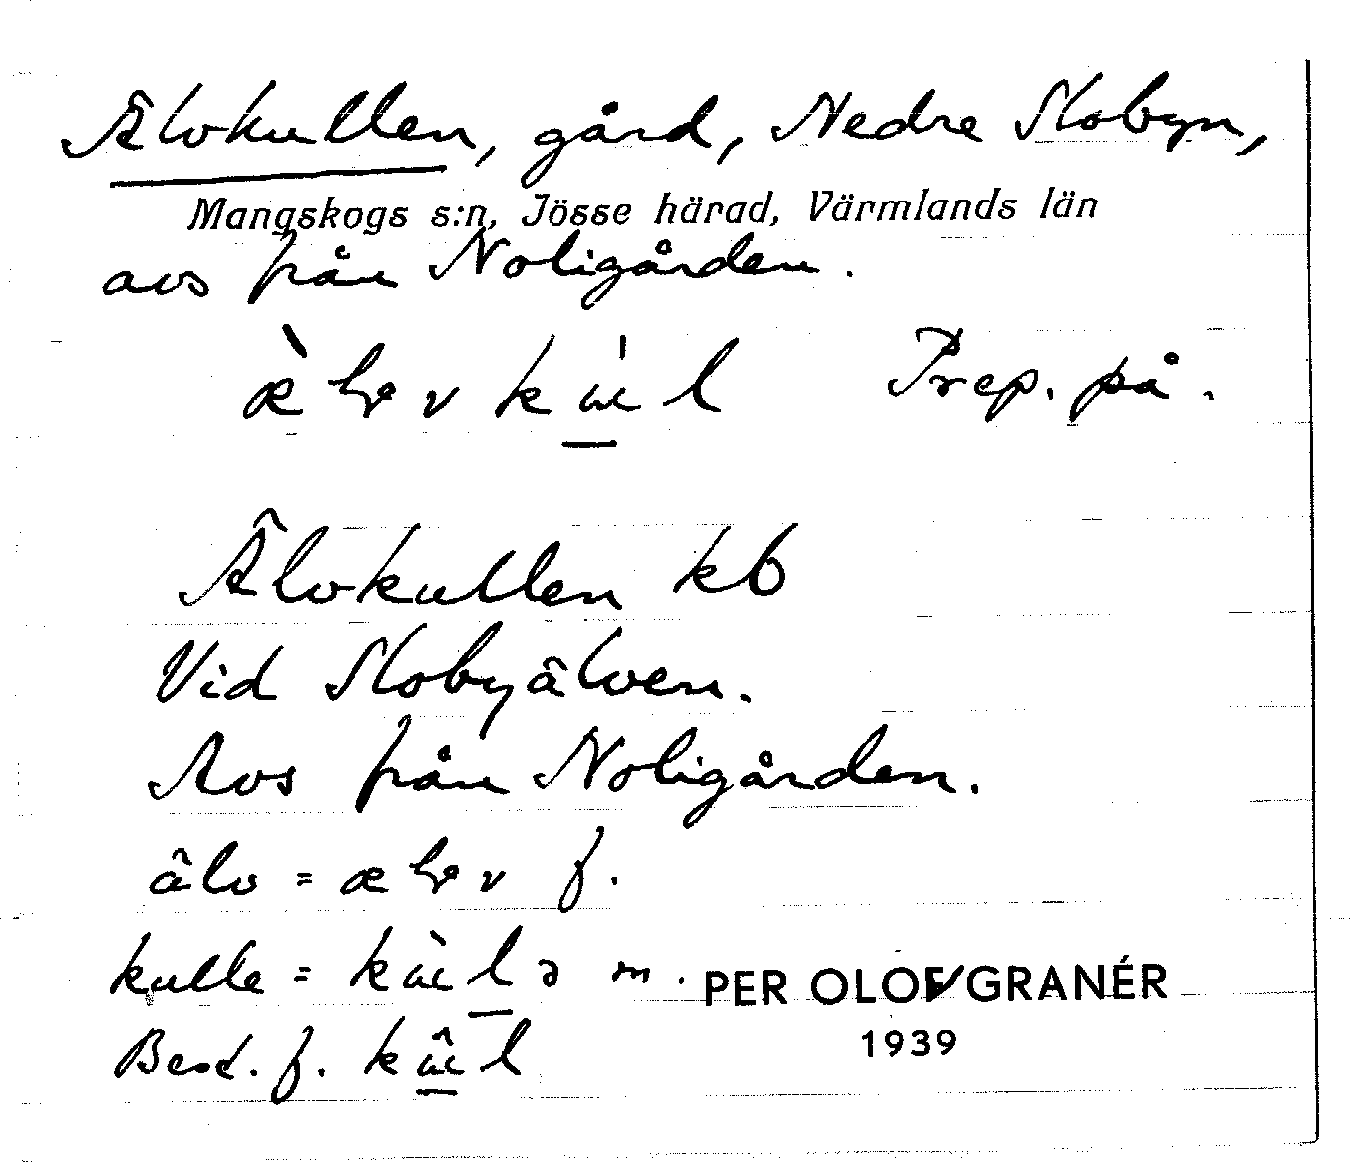 Älvkullen, gård, Nedre Slobyn,
Mangskogs s:n, Jösse härad, Värmlands län
avs från Noligården.
Prep. på.
Älvkullen kb
Vid Slobyälven.
Avs från Noligården.
älv = f.
kulle = m.
PER OLOF GRANÉR
1939
Best. f.